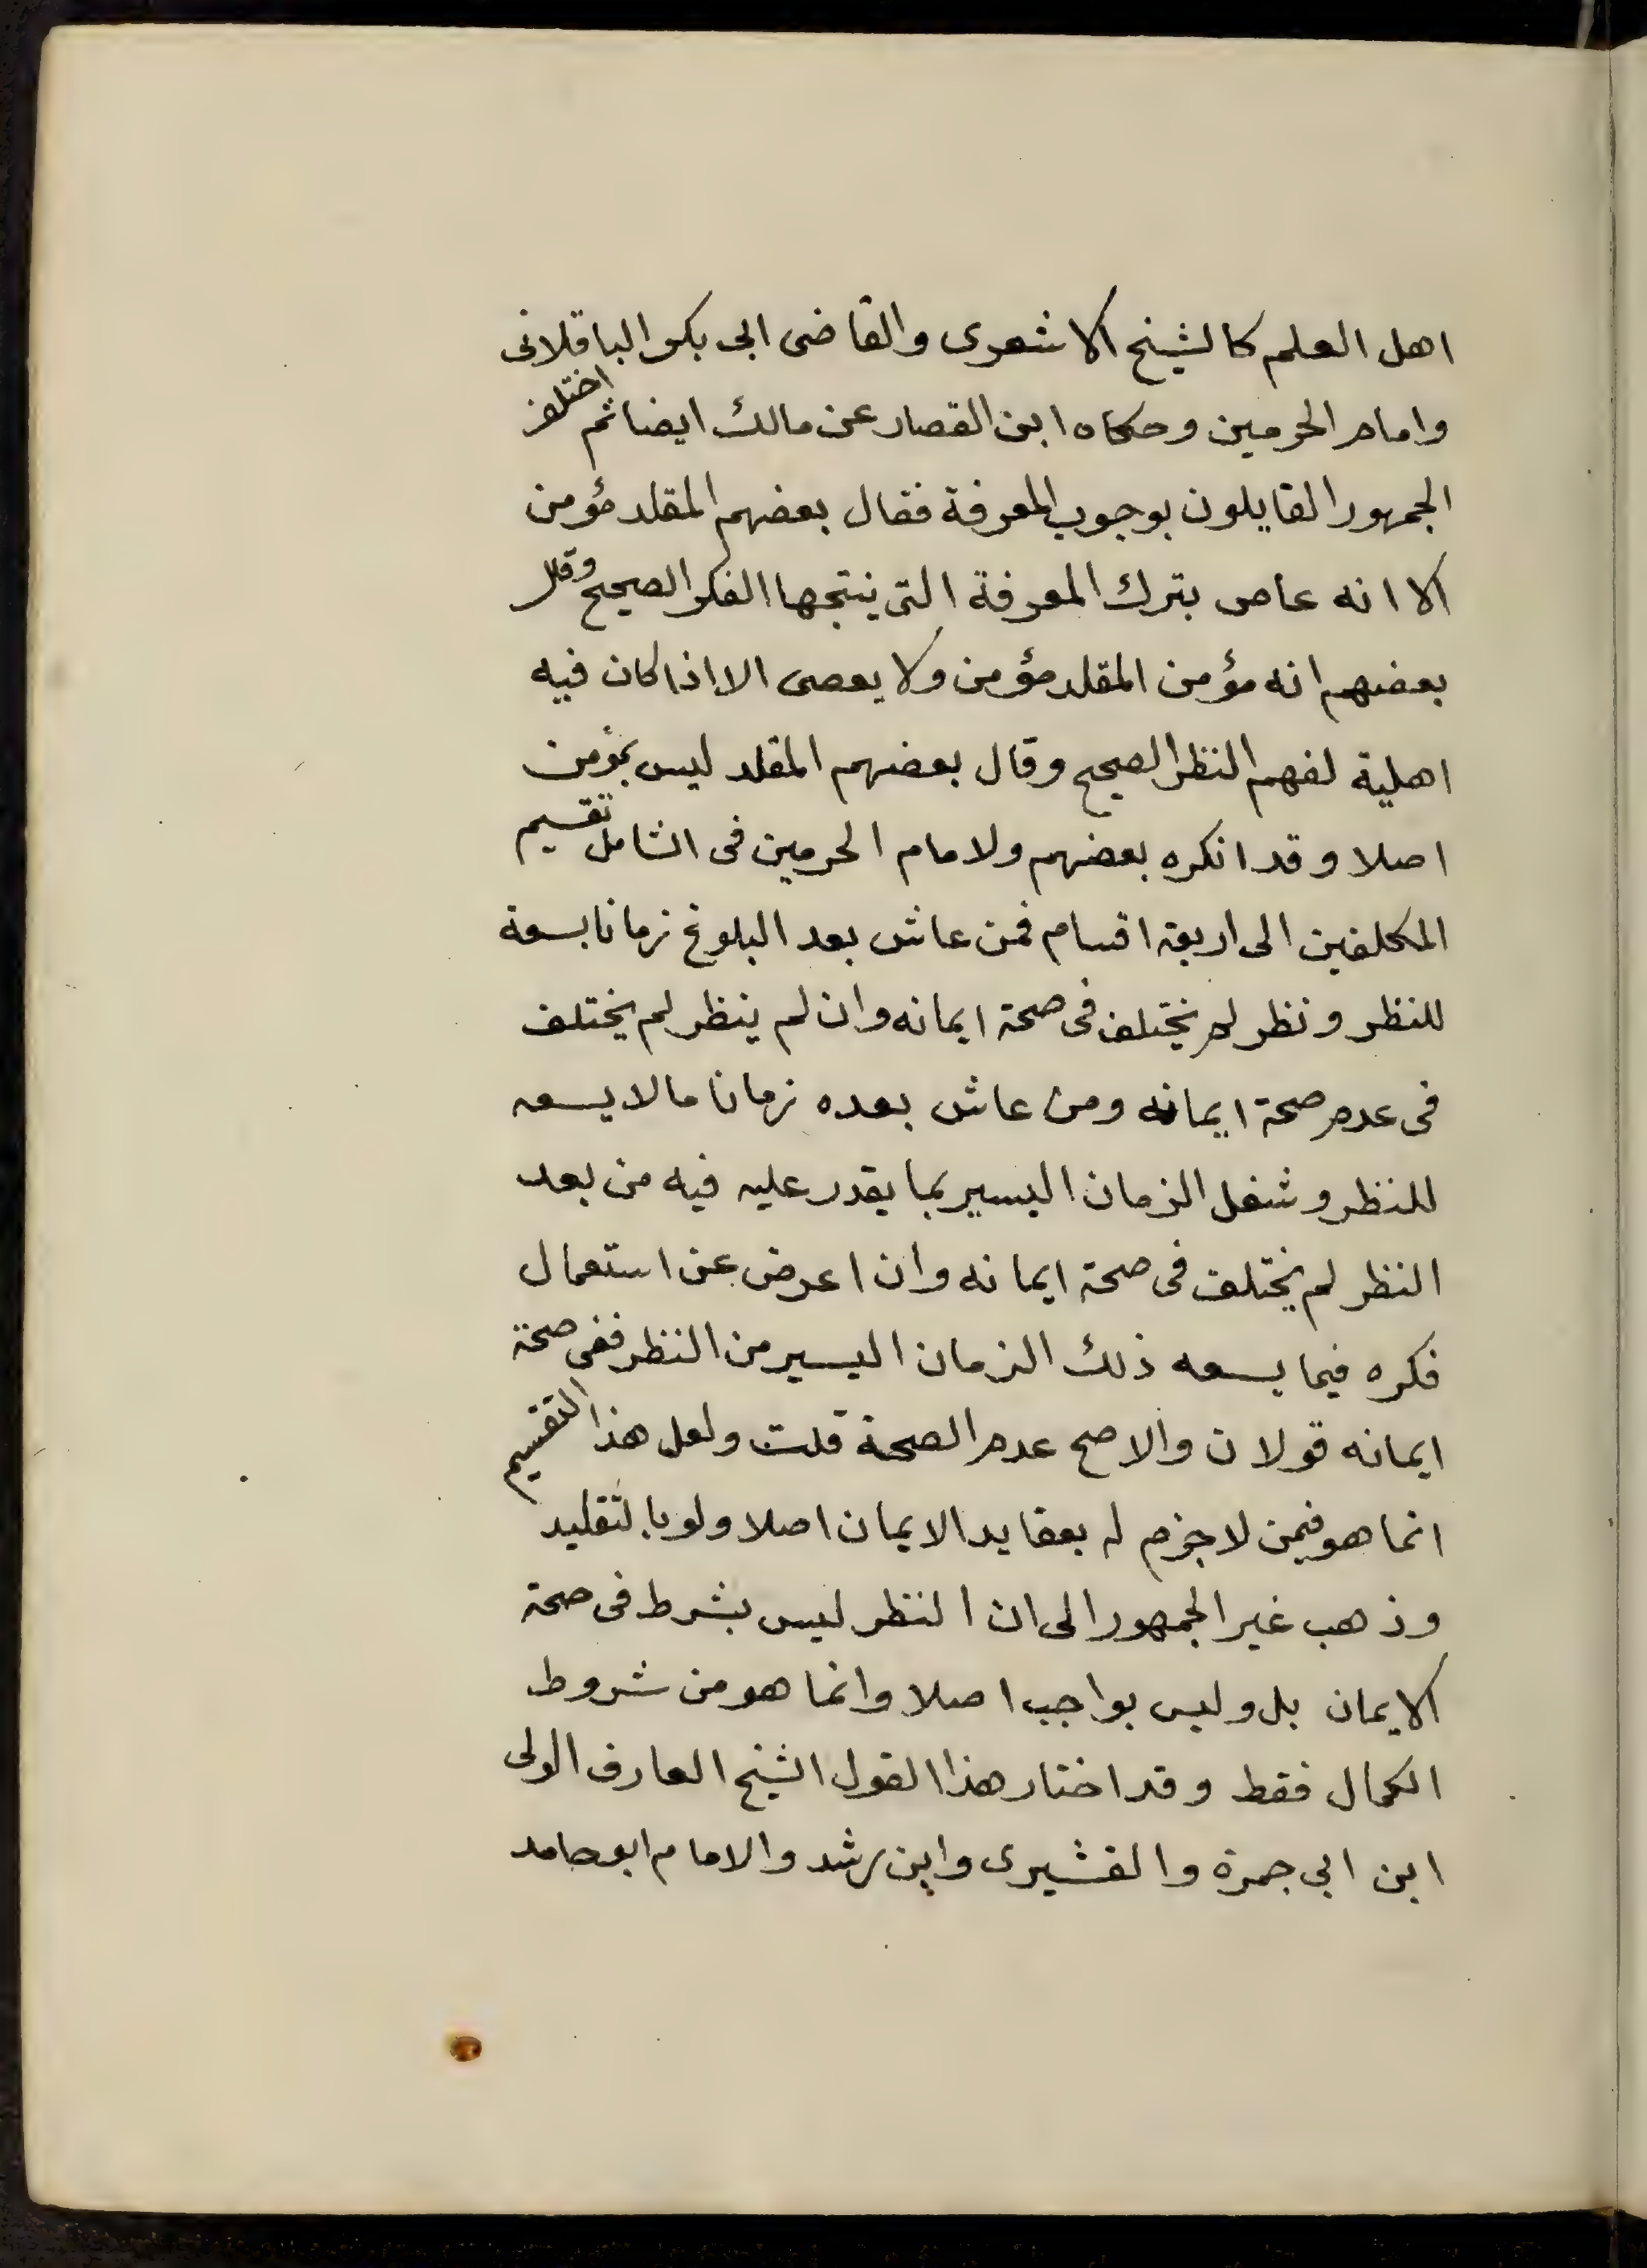 اهل العلم كالشيخ الاشعرى والقاضى ابى بكر الباقلانى
وامام الحرمين وحكاه ابن القصار عن مالك ايضا ثم اختلف
الجمهور القايلون بوجوب المعرفة فقال بعضهم المقلد مؤمن
الا انه عاص بترك المعرفة التى ينتجها الفكر الصحيح وقال
بعضهم انه مؤمن المقلد مؤمن ولا يعصى الا اذا كان فيه
اهلية لفهم النظر الصحيح وقال بعضهم المقلد ليس بمؤمن
اصلا وقد انكره بعضهم ولامام الحرمين فى الشامل تقسيم
المكلفين الى اربعة اقسام فمن عاش بعد البلوغ زمانا بسعة
للنظر ونظر لم يختلف فى صحة ايمانه وان لم ينظر لم يختلف
فى عدم صحة ايمانه ومن عاش بعده زمانا مالا يسعه
للنظر وشغل الزمان اليسير بما يقدر عليه فيه من بعد
النظر لم يختلف فى صحة ايمانه وان اعرض عن استعمال
فكره فيما يسعه ذلك الزمان اليسير من النظر ففى صحة
ايمانه قولان والاصح عدم الصحة قلت ولعل هذا التقسيم
انما هو فيمن لا جزم له بعقايد الايمان اصلا ولو بالتقليد
وذهب غير الجمهور الى ان النظر ليس بشرط فى صحة
الايمان بل وليس بواجب اصلا وانما هو من شروط
الكمال فقط وقد اختار هذا القول الشيخ العارف الولى
ابن ابى جمرة والقشيرى وابن رشد والامام ابو حامد